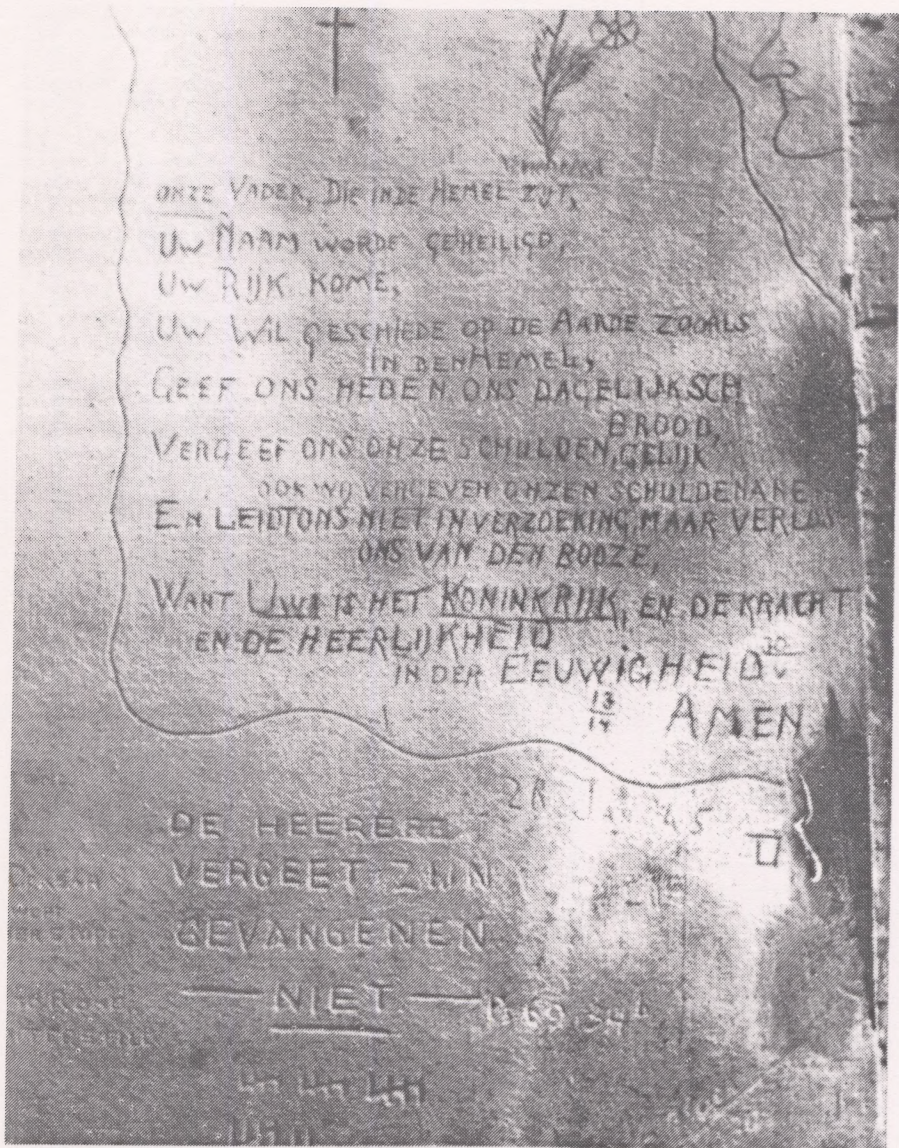 ONZE VADER, DIE IN DE HEMEL ZIJT,
UW NAAM WORDE GEHEILIGD,
UW RIJK KOME,
UW WIL GESCHIEDE OP DE AARDE ZOOALS
IN DEN HEMEL,
GEEF ONS HEDEN ONS DAGELIJKSCH
BROOD,
VERGEEF ONS ONZE SCHULDEN, GELIJK
OOK WIJ VERGEVEN ONZEN SCHULDENARE
EN LEIDT ONS NIET IN VERZOEKING, MAAR VERLOS
ONS VAN DEN BOOZE,
WANT UWE IS HET KONINKRIJK, EN DE KRACHT
EN DE HEERLIJKHEID
IN DER EEUWIGHEID
13
14 AMEN
JAN 45
DE HEERE
VERGEET ZIJN
GEVANGENEN
— NIET —